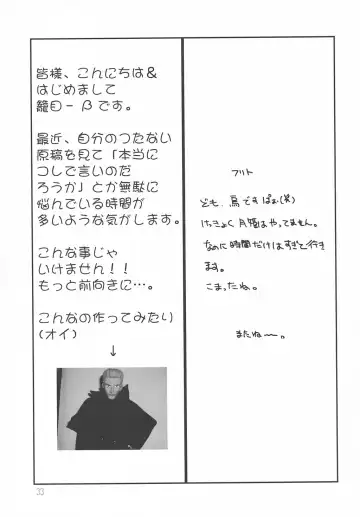 皆様、こんにちは＆
はじめまして
籠目－βです。
最近、自分のつたない
原稿を見て「本当に
コレで言いのだ
ろうか」とか無駄に
悩んでいる時間が
多いような気がします。
こんな事じゃ
いけません！！
もっと前向きに…。
こんなの作ってみたい
(オイ)
↓
フリト
ども、鳥ですぱぁ(笑)
けっきょく月語はやってません。
なのに時間だけはすぎて行き
ます。
こまったね。
またねー。
33